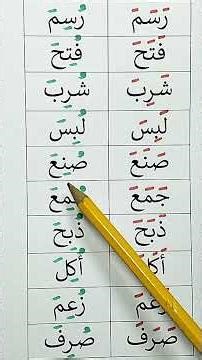 رَسَمَ رُسِمَ
فَتَحَ فُتِحَ
شَرِبَ شُرِبَ
لَبِسَ لُبِسَ
صَنَعَ صُنِعَ
جَمَعَ جُمِعَ
ذَبَحَ ذُبِحَ
أَكَلَ أُكِلَ
زَعَمَ زُعِمَ
صَرَفَ صُرِفَ